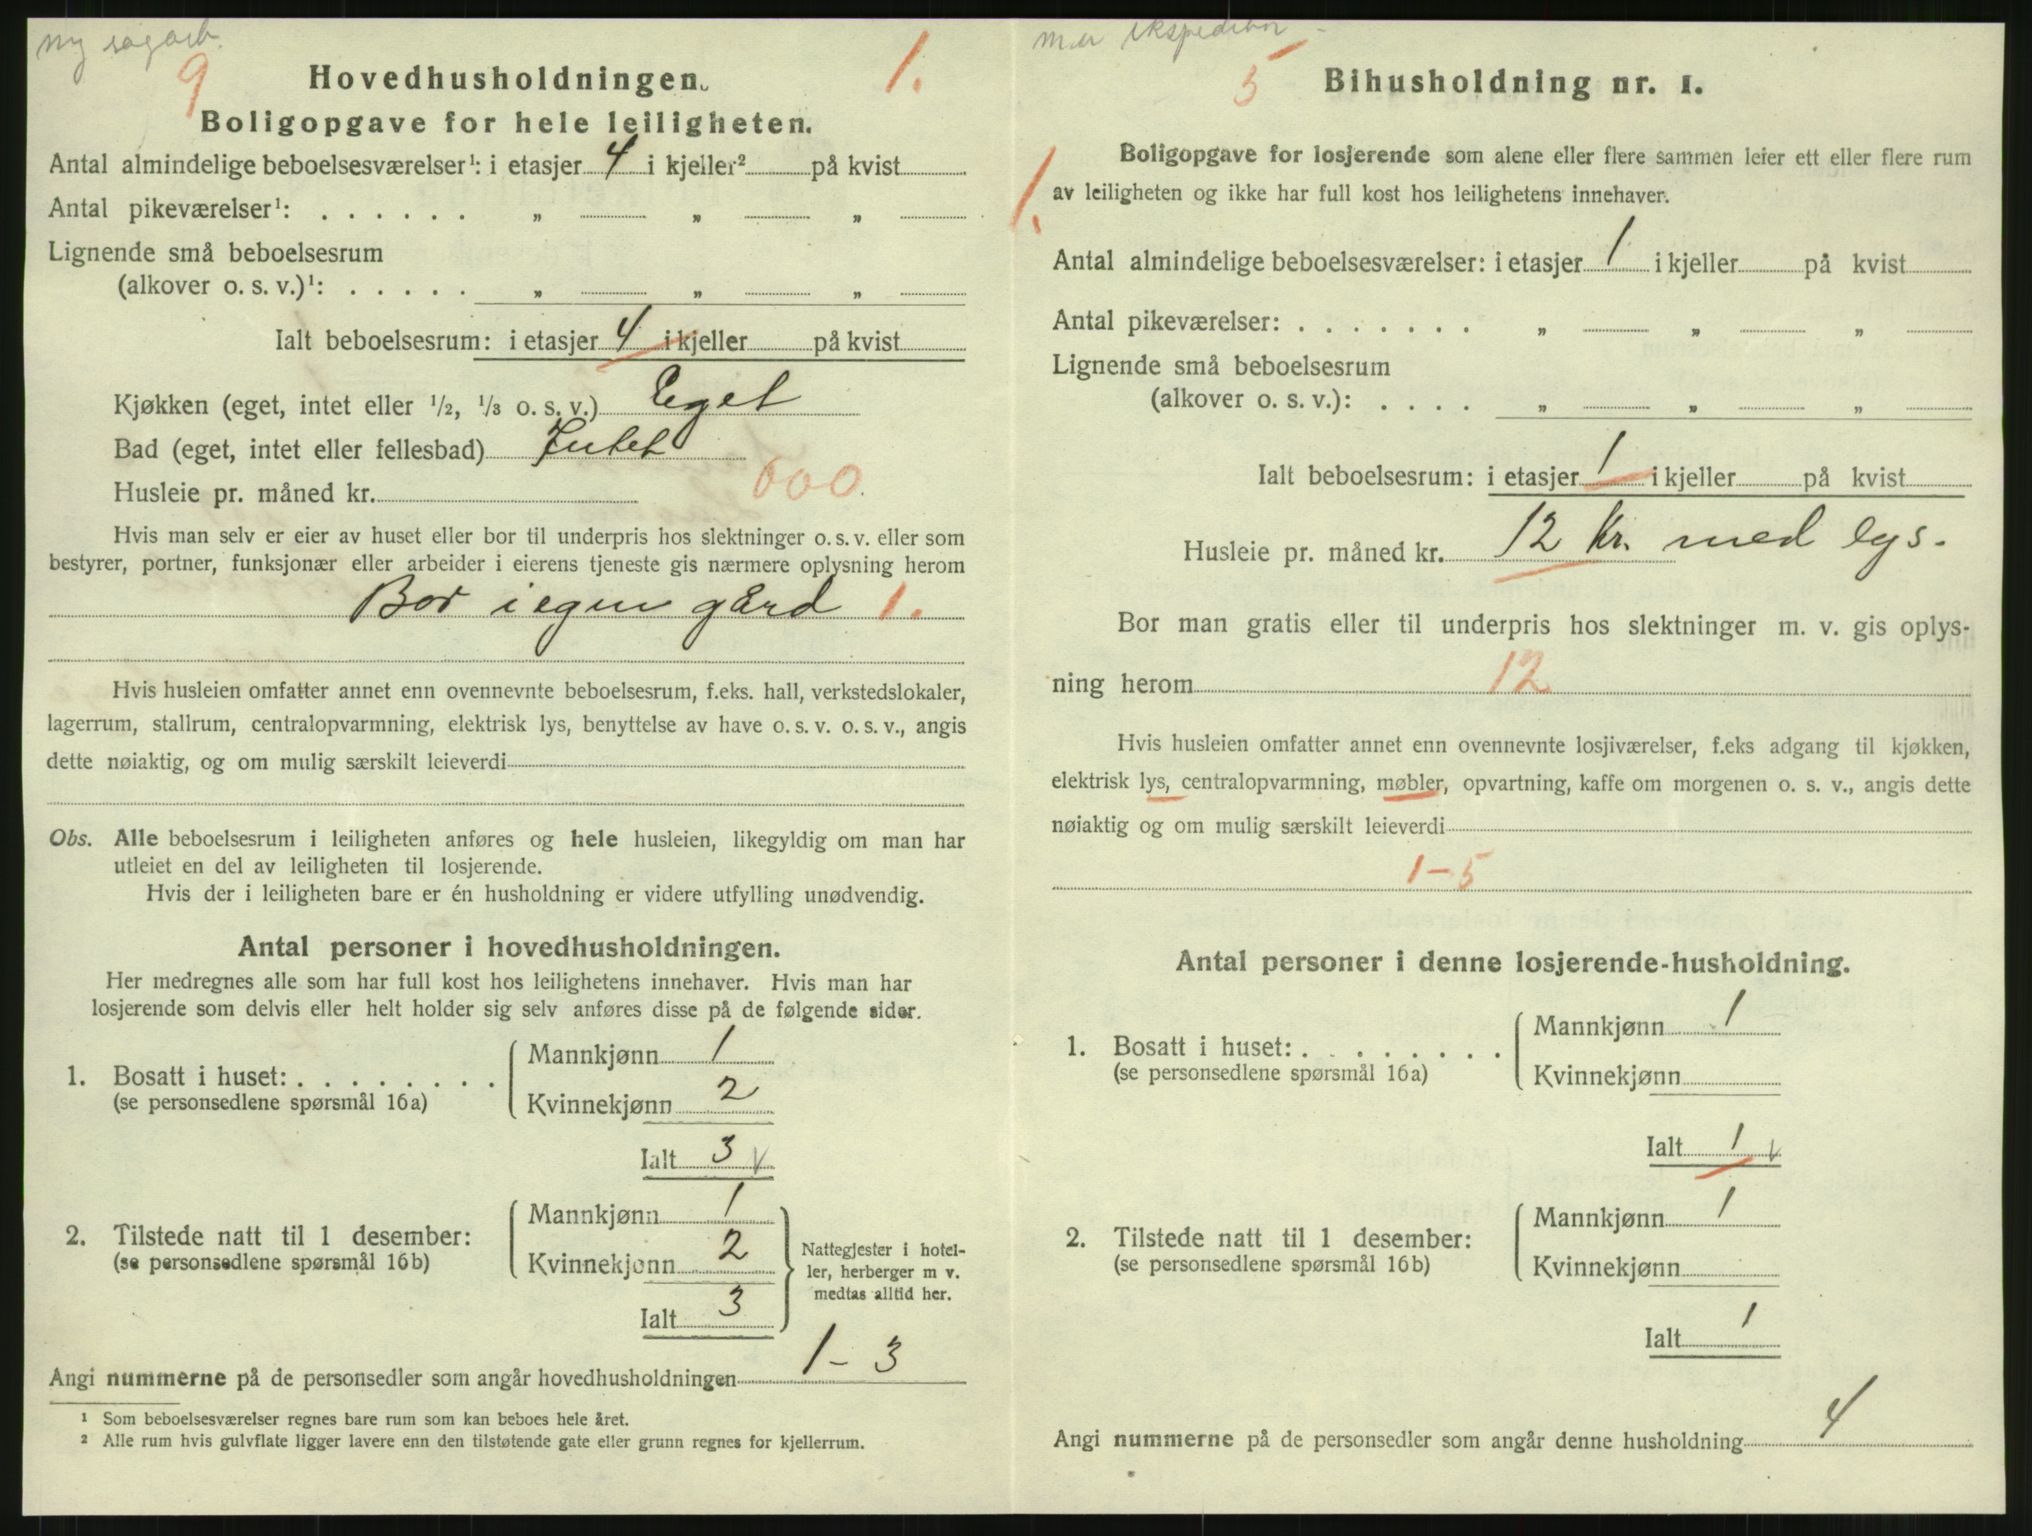 ny sagarb.
9
Hovedhusholdningen.
1.
Boligopgave for hele leiligheten.
Antal almindelige beboelsesværelser¹: i etasjer 4 i kjeller² på kvist
Antal pikeværelser¹: . . . . . . „ „ „
Lignende små beboelsesrum
(alkover o. s. v.)¹: . . . . . „ „ „
Ialt beboelsesrum: i etasjer 4 i kjeller på kvist
Kjøkken (eget, intet eller 1/2, 1/3 o. s. v.) Eget
Bad (eget, intet eller fellesbad) Intet
Husleie pr. måned kr. 000
Hvis man selv er eier av huset eller bor til underpris hos slektninger o. s. v. eller som
bestyrer, portner, funksjonær eller arbeider i eierens tjeneste gis nærmere oplysning herom
Bor i egen gård 1.
Hvis husleien omfatter annet enn ovennevnte beboelsesrum, f.eks. hall, verkstedslokaler,
lagerrum, stallrum, centralopvarmning, elektrisk lys, benyttelse av have o. s. v. o. s. v., angis
dette nøiaktig, og om mulig særskilt leieverdi
Obs. Alle beboelsesrum i leiligheten anføres og hele husleien, likegyldig om man har
utleiet en del av leiligheten til losjerende.
Hvis der i leiligheten bare er én husholdning er videre utfylling unødvendig.
Antal personer i hovedhusholdningen.
Her medregnes alle som har full kost hos leilighetens innehaver. Hvis man har
losjerende som delvis eller helt holder sig selv anføres disse på de følgende sider.
1. Bosatt i huset: . . . . . . . .
(se personsedlene spørsmål 16a)
Mannkjønn 1
Kvinnekjønn 2
Ialt 3
2. Tilstede natt til 1 desember:
(se personsedlene spørsmål 16b)
Mannkjønn 1
Kvinnekjønn 2
Ialt 3
Nattegjester i hotel-
ler, herberger m v.
medtas alltid her.
Angi nummerne på de personsedler som angår hovedhusholdningen 1 - 3
¹ Som beboelsesværelser regnes bare rum som kan beboes hele året.
² Alle rum hvis gulvflate ligger lavere enn den tilstøtende gate eller grunn regnes for kjellerrum.
ekspeditør
5
Bihusholdning nr. 1.
1.
Boligopgave for losjerende som alene eller flere sammen leier ett eller flere rum
av leiligheten og ikke har full kost hos leilighetens innehaver.
Antal almindelige beboelsesværelser: i etasjer 1 i kjeller på kvist
Antal pikeværelser: . . . . . . . „ „ „
Lignende små beboelsesrum
(alkover o. s. v.): . . . . „ „ „
Ialt beboelsesrum: i etasjer 1 i kjeller på kvist
Husleie pr. måned kr. 12 Kr. med lys.
Bor man gratis eller til underpris hos slektninger m. v. gis oplys-
ning herom 12
Hvis husleien omfatter annet enn ovennevnte losjiværelser, f.eks adgang til kjøkken,
elektrisk lys, centralopvarmning, møbler, opvartning, kaffe om morgenen o. s. v., angis dette
nøiaktig og om mulig særskilt leieverdi
1-5
Antal personer i denne losjerende-husholdning.
1. Bosatt i huset: . . . . . . . .
(se personsedlene spørsmål 16a)
Mannkjønn 1
Kvinnekjønn
Ialt 1
2. Tilstede natt til 1 desember:
(se personsedlene spørsmål 16b)
Mannkjønn 1
Kvinnekjønn
Ialt 1
Angi nummerne på de personsedler som angår denne husholdning 4